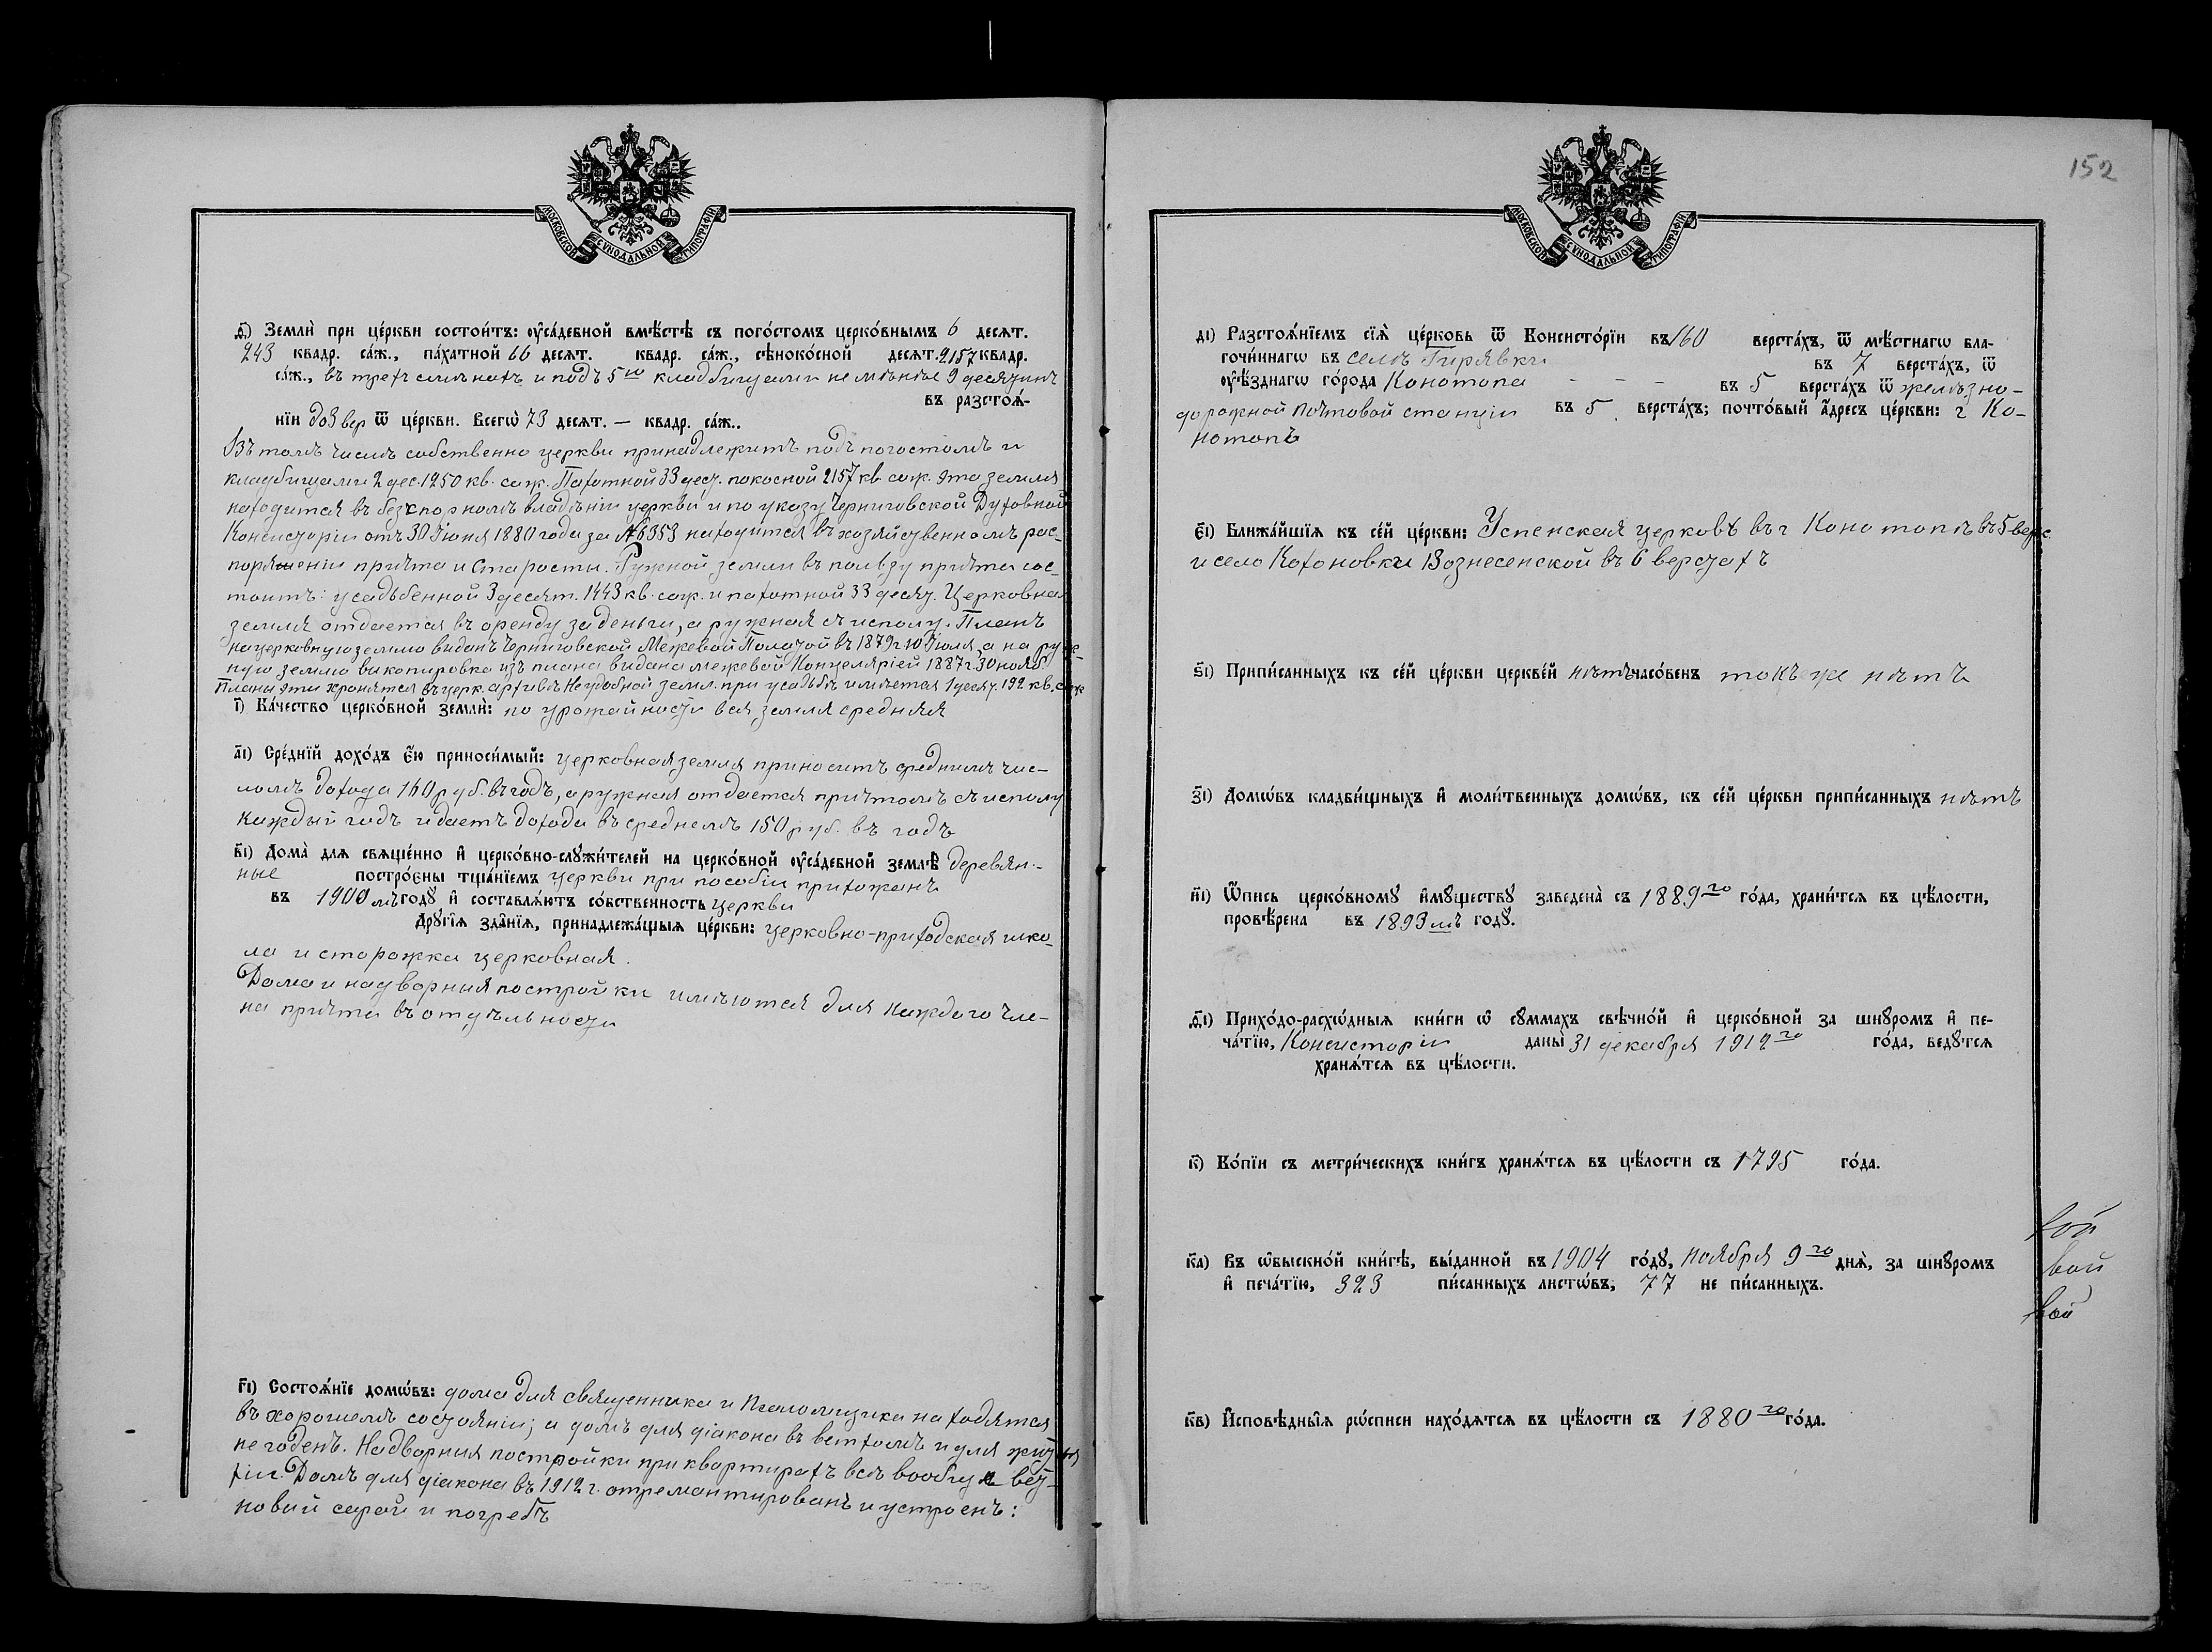 МОСКОВСКОЙ СУНОДАЛЬНОЙ ТИПОГРАФІИ
ѳ҃) Землѝ при це́ркви состои́тъ: ᲂу҆са́дебной вмѣ́стѣ съ пого́стомъ церко́внымъ 6 десѧт.
243 квадр. са́ж., па́хатной 66 десѧт. квадр. са́ж., сѣноко́сной десѧт. 2157 квадр.
са́ж., въ трехъ смѣнахъ и подъ 5ю кладбищами не менѣе 9 десятинъ
въ разстоѧ́-
нїи до 3 вер ѿ це́ркви. Всегѡ̀ 73 десѧт. — квадр. са́ж..
Въ томъ числѣ собственно церкви принадлежитъ подъ погостомъ и
кладбищами 2 дес. 1250 кв. саж. Пахотной 33 десят. покосной 2157 кв саж. Эта земля
находится въ безспорномъ владѣніи церкви и по указу Черниговской Духовной
Консисторіи отъ 30 Іюня 1880 года за № 6353 находится въ хозяйственномъ рас-
поряженіи причта и Старосты. Ружной земли въ пользу причта сос-
тоитъ: усадьбенной 3 десят. 1443 кв. саж. и пахотной 33 десят. Церковная
земля отдается въ аренду за деньги, а ружная съ исполу. Планъ
на церковную землю виданъ Черниговской Межевой Палатой въ 1879 г. 10 Іюля, а на руж-
ную землю викопировка изъ плана видана межевой Канцеляріей 1887 г. 30 нояб.
Планы эти хранятся въ церк. архивѣ. Неудобной земл. при усадьбѣ имѣется 1 десят. 192 кв. саж
і҃) Ка́чество церко́вной землѝ: по урожайности вся земля средняя
а҃і) Сре́днїй дохо́дъ є҆́ю приноси́мый: церковная земля приноситъ среднимъ чис-
ломъ дохода 160 руб. въ годъ, а ружная отдается причтомъ съ исполу
каждый годъ и даетъ дохода въ среднемъ 150 руб. въ годъ
в҃і) Дома̀ для свѧще́нно и҆ церко́вно-слꙋжи́телей на церко́вной ᲂу҆са́дебной землѣ̀ деревян-
ные постро́єны тща́нїемъ церкви при пособіи прихожанъ
въ 1900 мъ годꙋ̀ и҆ составлѧ́ютъ со́бственность церкви
Дрꙋгі̑ѧ зда̑нїѧ, принадлежа́щыѧ це́ркви: церковно-приходская шко-
ла и сторожка церковная.
Дома и надворныя постройки имѣются для каждаго чле-
на причта въ отдѣльности
г҃і) Состоѧ́нїе домѡ́въ: дома для священника и Псаломщика находятся
въ хорошемъ состояніи; а домъ для діакона въ ветхомъ и для житья
не годенъ. Надворныя постройки при квартирахъ всѣ вообще вет-
хіи. Домъ для діакона въ 1912 г. отремонтированъ и устроенъ:
новый сарай и погребъ
152
МОСКОВСКОЙ СУНОДАЛЬНОЙ ТИПОГРАФІИ
д҃і) Разстоѧ́нїемъ сїѧ̀ це́рковь ѿ Консисто́рїи въ 160 верста́хъ, ѿ мѣ́стнагѡ бла-
гочи́ннагѡ въ селѣ Гирявки въ 7 верста́хъ, ѿ
ᲂу҆ѣ́зднагѡ го́рода Конотопа - - - въ 5 верста́хъ ѿ желѣзно-
дорожной почтовой станціи въ 5 верста́хъ; почто́вый а҆́дресъ це́ркви: г Ко-
нотопъ
є҃і) Ближа́йшїѧ къ се́й це́ркви: Успенская церковъ въ г Конотопѣ въ 5 верс.
и село Кохановки Вознесенской въ 6 верстахъ
ѕ҃і) Припи́санныхъ къ се́й це́ркви церкве́й нѣтъ часо́венъ такъ же нѣтъ
з҃і) Домѡ́въ кладби́щныхъ и҆ моли́твенныхъ домѡ́въ, къ се́й це́ркви припи́санныхъ нѣтъ
и҃і) Ѻ҆́пись церко́вномꙋ и҆мꙋ́ществꙋ заведена̀ съ 1889го го́да, храни́тсѧ въ цѣ́лости,
провѣ́рена въ 1893мъ годꙋ̀.
ѳ҃і) Прихо́до-расхѡ́дныѧ кни́ги ѡ҆ сꙋ́ммахъ свѣчно́й и҆ церко́вной за шнꙋро́мъ и҆ пе-
ча́тїю, Консисторіи даны̀ 31 декабря 1912го го́да, ведꙋ́тсѧ
хранѧ́тсѧ въ цѣ́лости.
к҃) Ко́пїи съ метри́ческихъ кни́гъ хранѧ́тсѧ въ цѣ́лости съ 1795 го́да.
к҃а) Въ ѡ҆быскно́й кни́гѣ, вы́данной въ 1904 годꙋ̀, ноября 9го днѧ̀, за шнꙋро́мъ
и҆ печа́тїю, 323 пи́санныхъ листѡ́въ, 77 не пи́санныхъ.
к҃в) И҆сповѣ̑дныѧ рѡ́списи нахо́дѧтсѧ въ цѣ́лости съ 1880го го́да.
вой
вой